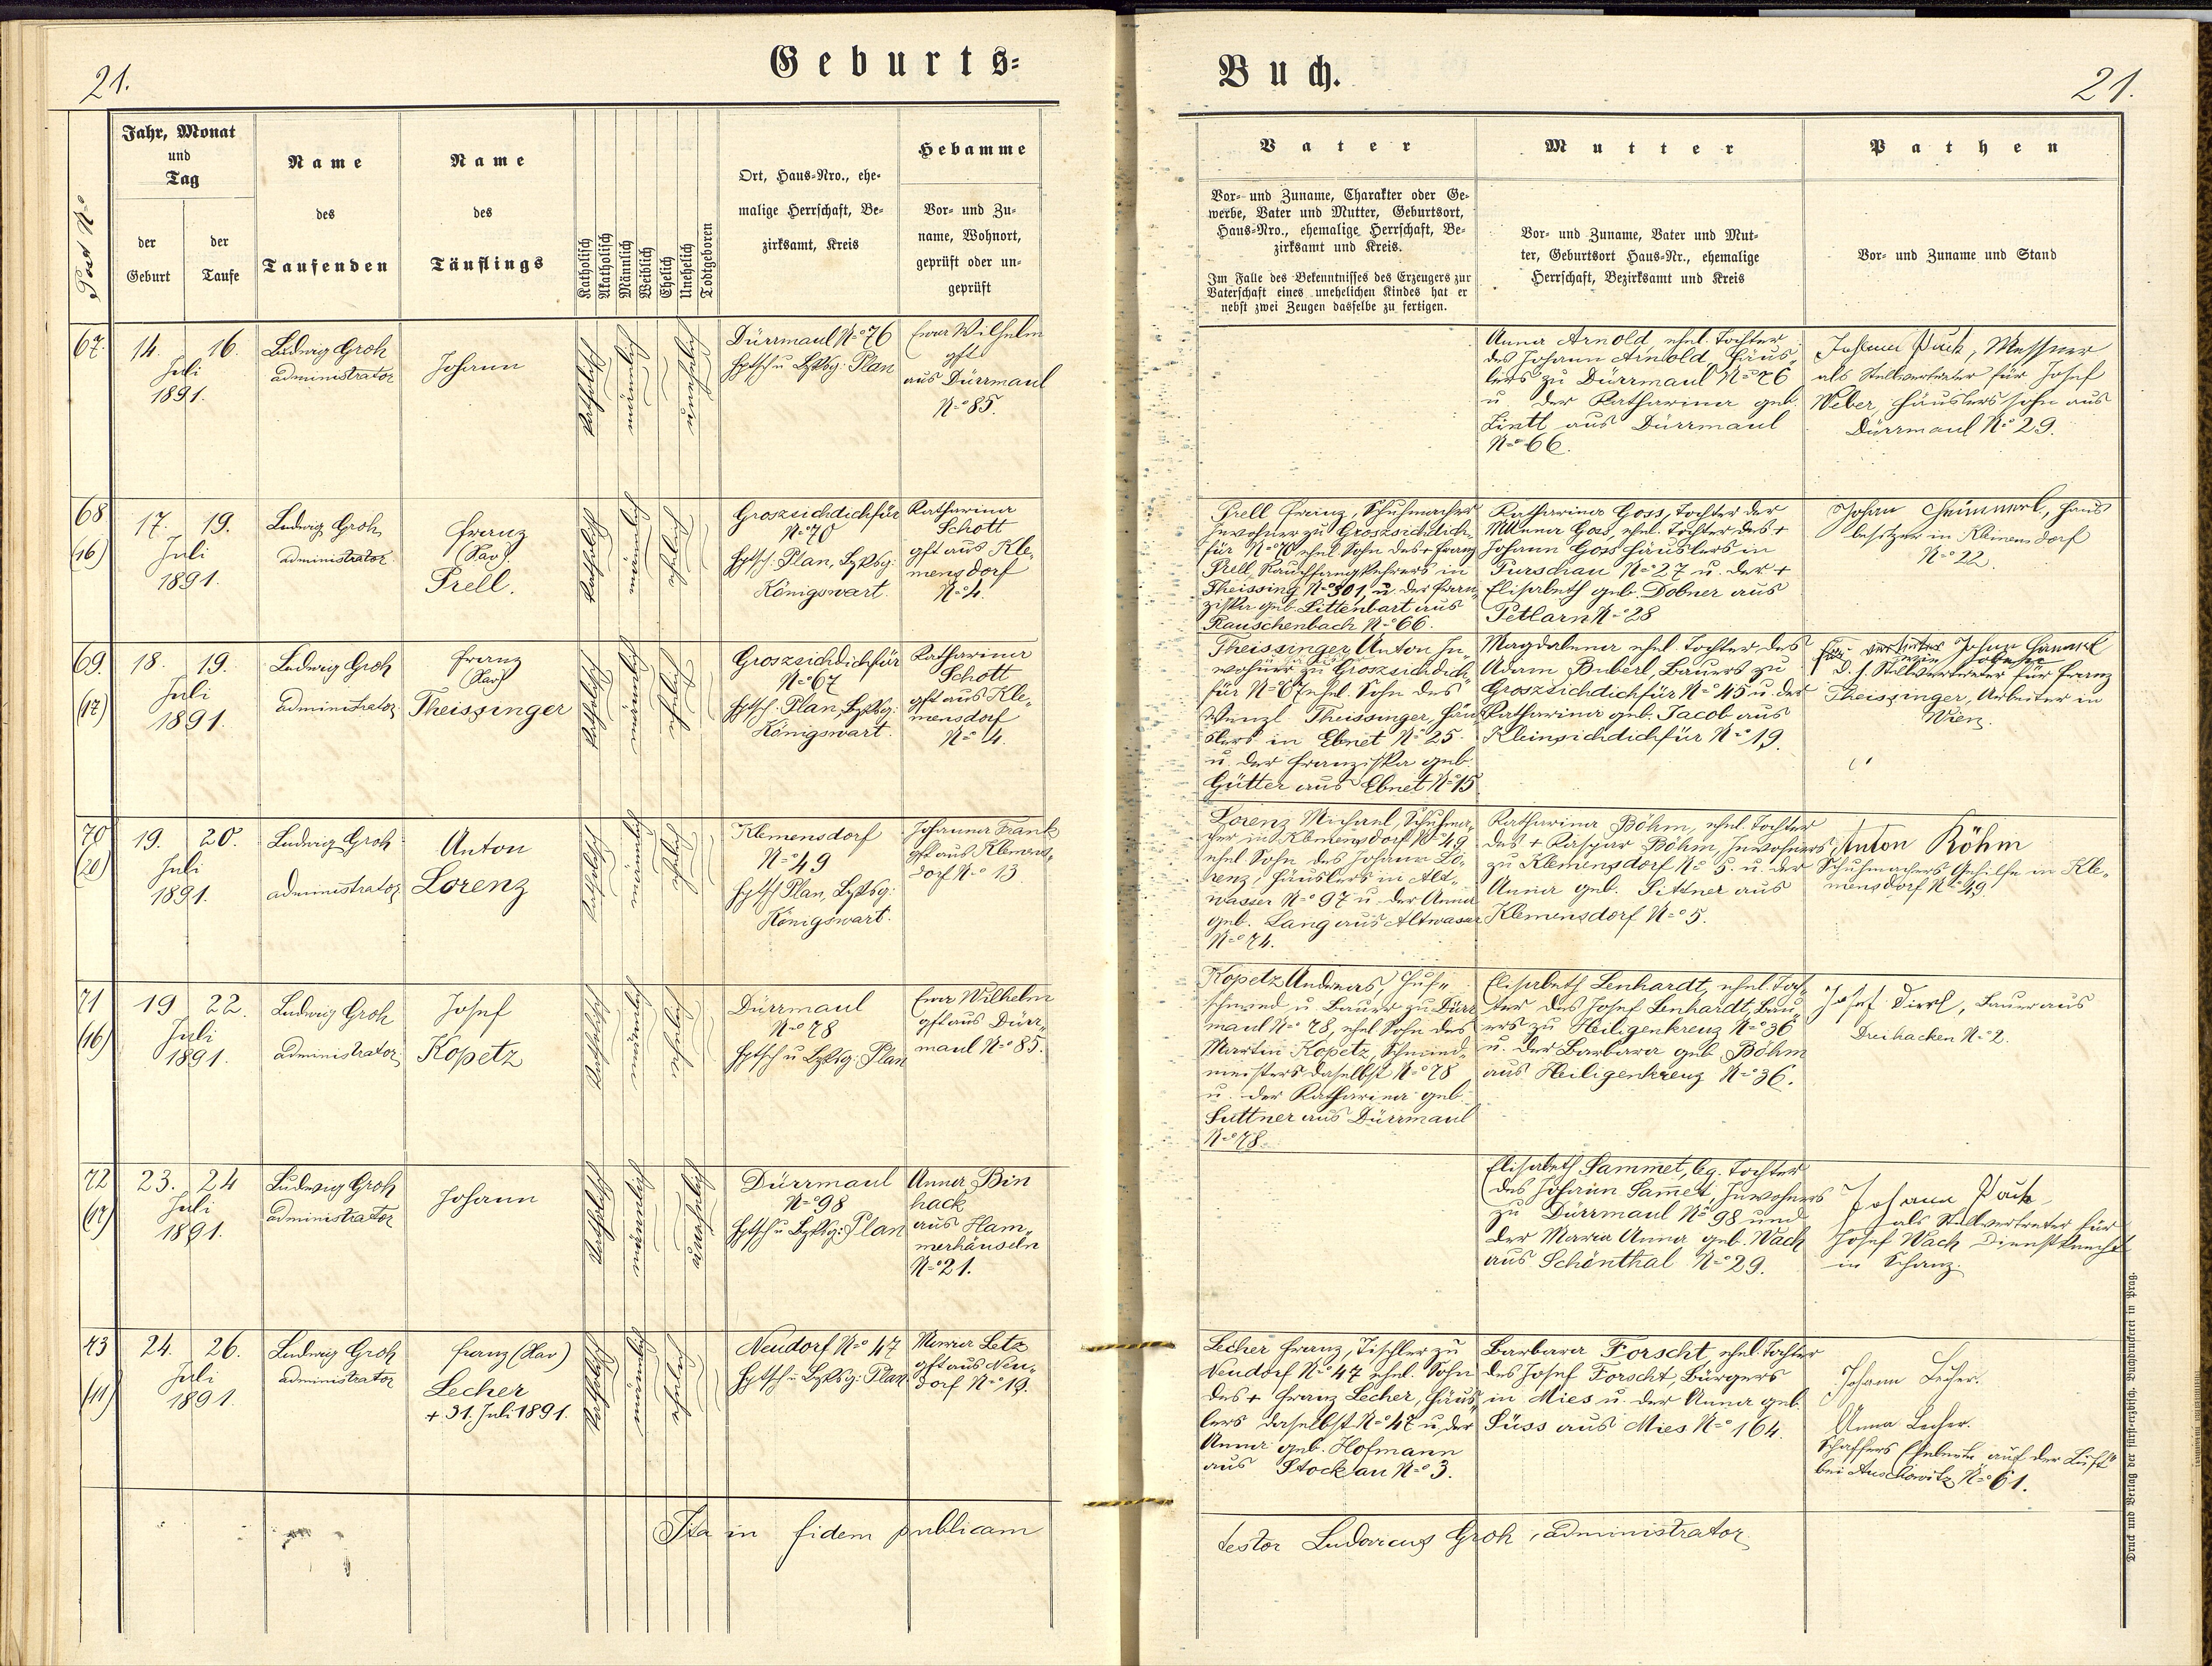 21.
Geburts=
Buch.
21.
Post No
Jahr, Monat
und
Tag
der
Geburt
der
Taufe
Name
des
Taufenden
Name
des
Täuflings
Katholisch
Akatholisch
Männlich
Weiblich
Ehelich
Unehelich
Todtgeboren
Ort, Haus=Nro., ehe=
malige Herrschaft, Be=
zirksamt, Kreis
Hebamme
Vor= und Zu=
name, Wohnort,
geprüft oder un=
geprüft
Vater
Vor= und Zuname, Charakter oder Ge=
werbe, Vater und Mutter, Geburtsort,
Haus=Nro., ehemalige Herrschaft, Be=
zirksamt und Kreis.
Im Falle des Bekenntnisses des Erzeugers zur
Vaterschaft eines unehelichen Kindes hat er
nebst zwei Zeugen dasselbe zu fertigen.
Mutter
Vor= und Zuname, Vater und Mut=
ter, Geburtsort Haus=Nr., ehemalige
Herrschaft, Bezirksamt und Kreis
Pathen
Vor= und Zuname und Stand
67.
14. 16.
Juli
1891.
Ludwig Groh
administrator
Johann
katholisch
männlich
unehelich
Dürrmaul No 76
Hptsch u. Bzksg: Plan
Eva Wilhelm
gft
aus Dürrmaul
No 85.
Anna Arnold, ehel. Tochter
des Johann Arnold, Häus-
lers zu Dürrmaul No 76
u. der Katharina geb.
Lintl aus Dürrmaul
No 66.
Johann Pack, Messner
als Stellvertreter für Josef
Weber, Häuslerssohn aus
Dürrmaul No 29.
68
(16)
17. 19.
Juli
1891.
Ludwig Groh
administrator
Franz
(Xav).
Prell.
katholisch
männlich
ehelich
Groszsichdichfür
No 70
Hptsch. Plan, Bzksg:
Königswart.
Katharina
Schott
gft aus Kle-
mensdorf
No 4.
Prell Franz, Schuhmacher
Inwohner zu Groszsichdich-
für No 70 ehel. Sohn des + Franz
Prell, Rauchfangkehrers in
Theissing No 301, u. der Fran-
ziska geb. Littenbart aus
Rauschenbach No 66.
Katharina Goss, Tochter der
Anna Goss, ehel. Tochter des +
Johann Goss Häuslers in
Purschau No 27 u. der +
Elisabeth geb. Dobner aus
Petlarn No 28
Johann Hämmerl, Haus
besitzer in Klemensdorf
No 22.
69.
(17)
18. 19.
Juli
1891.
Ludwig Groh
administrator
Franz
(Xav)
Theissinger
katholisch
männlich
ehelich
Groszsichdichfür
No 67
Hptsch. Plan, Bzksg:
Königswart.
Katharina
Schott
gft aus Kle-
mensdorf
No 4.
Theissinger Anton In-
wohner zu Groszsichdich-
für No 67 ehel. Sohn des
Wenzl Theissinger, Häu-
slers in Ebnet No 25.
u. der Franziska geb.
Gütter aus Ebnet No 15
Magdalena ehel. Tochter des
Adam Buberl, Bauers zu
Groszsichdichfür No 45 u. der
Katharina geb. Jacob aus
Kleinsichdichfür No 19.
Johann Hämmerl
d. h. Stellvertreter für Franz
Theissinger, Arbeiter in
Wien.
70
(20)
19. 20.
Juli
1891.
Ludwig Groh
administrator
Anton
Lorenz
katholisch
männlich
ehelich
Klemensdorf
No 49
Hptsch Plan, Bzksg:
Königswart.
Johanna Frank
gft aus Klemens-
dorf No 13
Lorenz Michael, Schuhma-
cher in Klemensdorf No 49
ehel. Sohn des Johann Lo-
renz, Häuslers in Alt-
wasser No 97 u. der Anna
geb. Lang aus Altwasser
No 74.
Katharina Böhm, ehel. Tochter
des + Kaspar Böhm, Inwohners
zu Klemensdorf No 5. u. der
Anna geb. Sittner aus
Klemensdorf No 5.
Anton Röhm
Schuhmachers Gehilfe in Kle-
mensdorf No 49
71
(16)
19 22.
Juli
1891.
Ludwig Groh
administrator
Josef
Kopetz
katholisch
männlich
ehelich
Dürrmaul
No 78
Hptsch u Bzksg: Plan
Eva Wilhelm
gft aus Dürr-
maul No 85.
Kopetz Andreas, Huf-
schmied u. Bauer zu Dürr
maul No 78, ehel Sohn des
Martin Kopetz, Schmied-
meisters daselbst No 78
u. der Katharina geb.
Suttner aus Dürrmaul
No 78.
Elisabeth Lenhardt, ehel. Toch-
ter des Josef Lenhardt, Bau-
ers zu Heiligenkreuz No 36
u. der Barbara geb Böhm
aus Heiligenkreuz No 36.
Josef Dierl, Bauer aus
Dreihacken No 2.
72
(17)
23. 24
Juli
1891.
Ludwig Groh
administrator
Johann
katholisch
männlich
unehelich
Dürrmaul
No 98
Hptsch u Bzksg: Plan
Anna Bin
hack
aus Ham-
merhäuseln
No 21.
Elisabeth Sammet, leg. Tochter
des Johann Samet, Inwohners
zu Dürrmaul No 98 und
der Maria Anna geb. Wach
aus Schönthal No 29.
Johann Pack
als Stellvertreter für
Josef Wach Dienstknecht
in Schanz.
73
(11)
24. 26.
Juli
1891.
Ludwig Groh
administrator
Franz (Xav)
Lecher
+ 31. Juli 1891.
katholisch
männlich
ehelich
Neudorf No 47
Hptsch u Bzksg: Plan
Maria Letz
gft aus Neu-
dorf No 19.
Lecher Franz, Tischler zu
Neudorf No 47 ehel. Sohn
des + Franz Lecher, Häus-
lers daselbst No 47 u. der
Anna geb. Hofmann
aus Stockau No 3.
Barbara Forscht ehel. Tochter
des Josef Forscht, Bürgers
in Mies u. der Anna geb.
Süss aus Mies No 164.
Johann Lecher.
Anna Lecher.
Schaffers Eheleute auf der Lust
bei Auschowitz No 61.
Ita in fidem publicam
testor Ludovicus Groh, administrator
Druck und Verlag der fürst=erzbisch. Buchdruckerei in Prag.